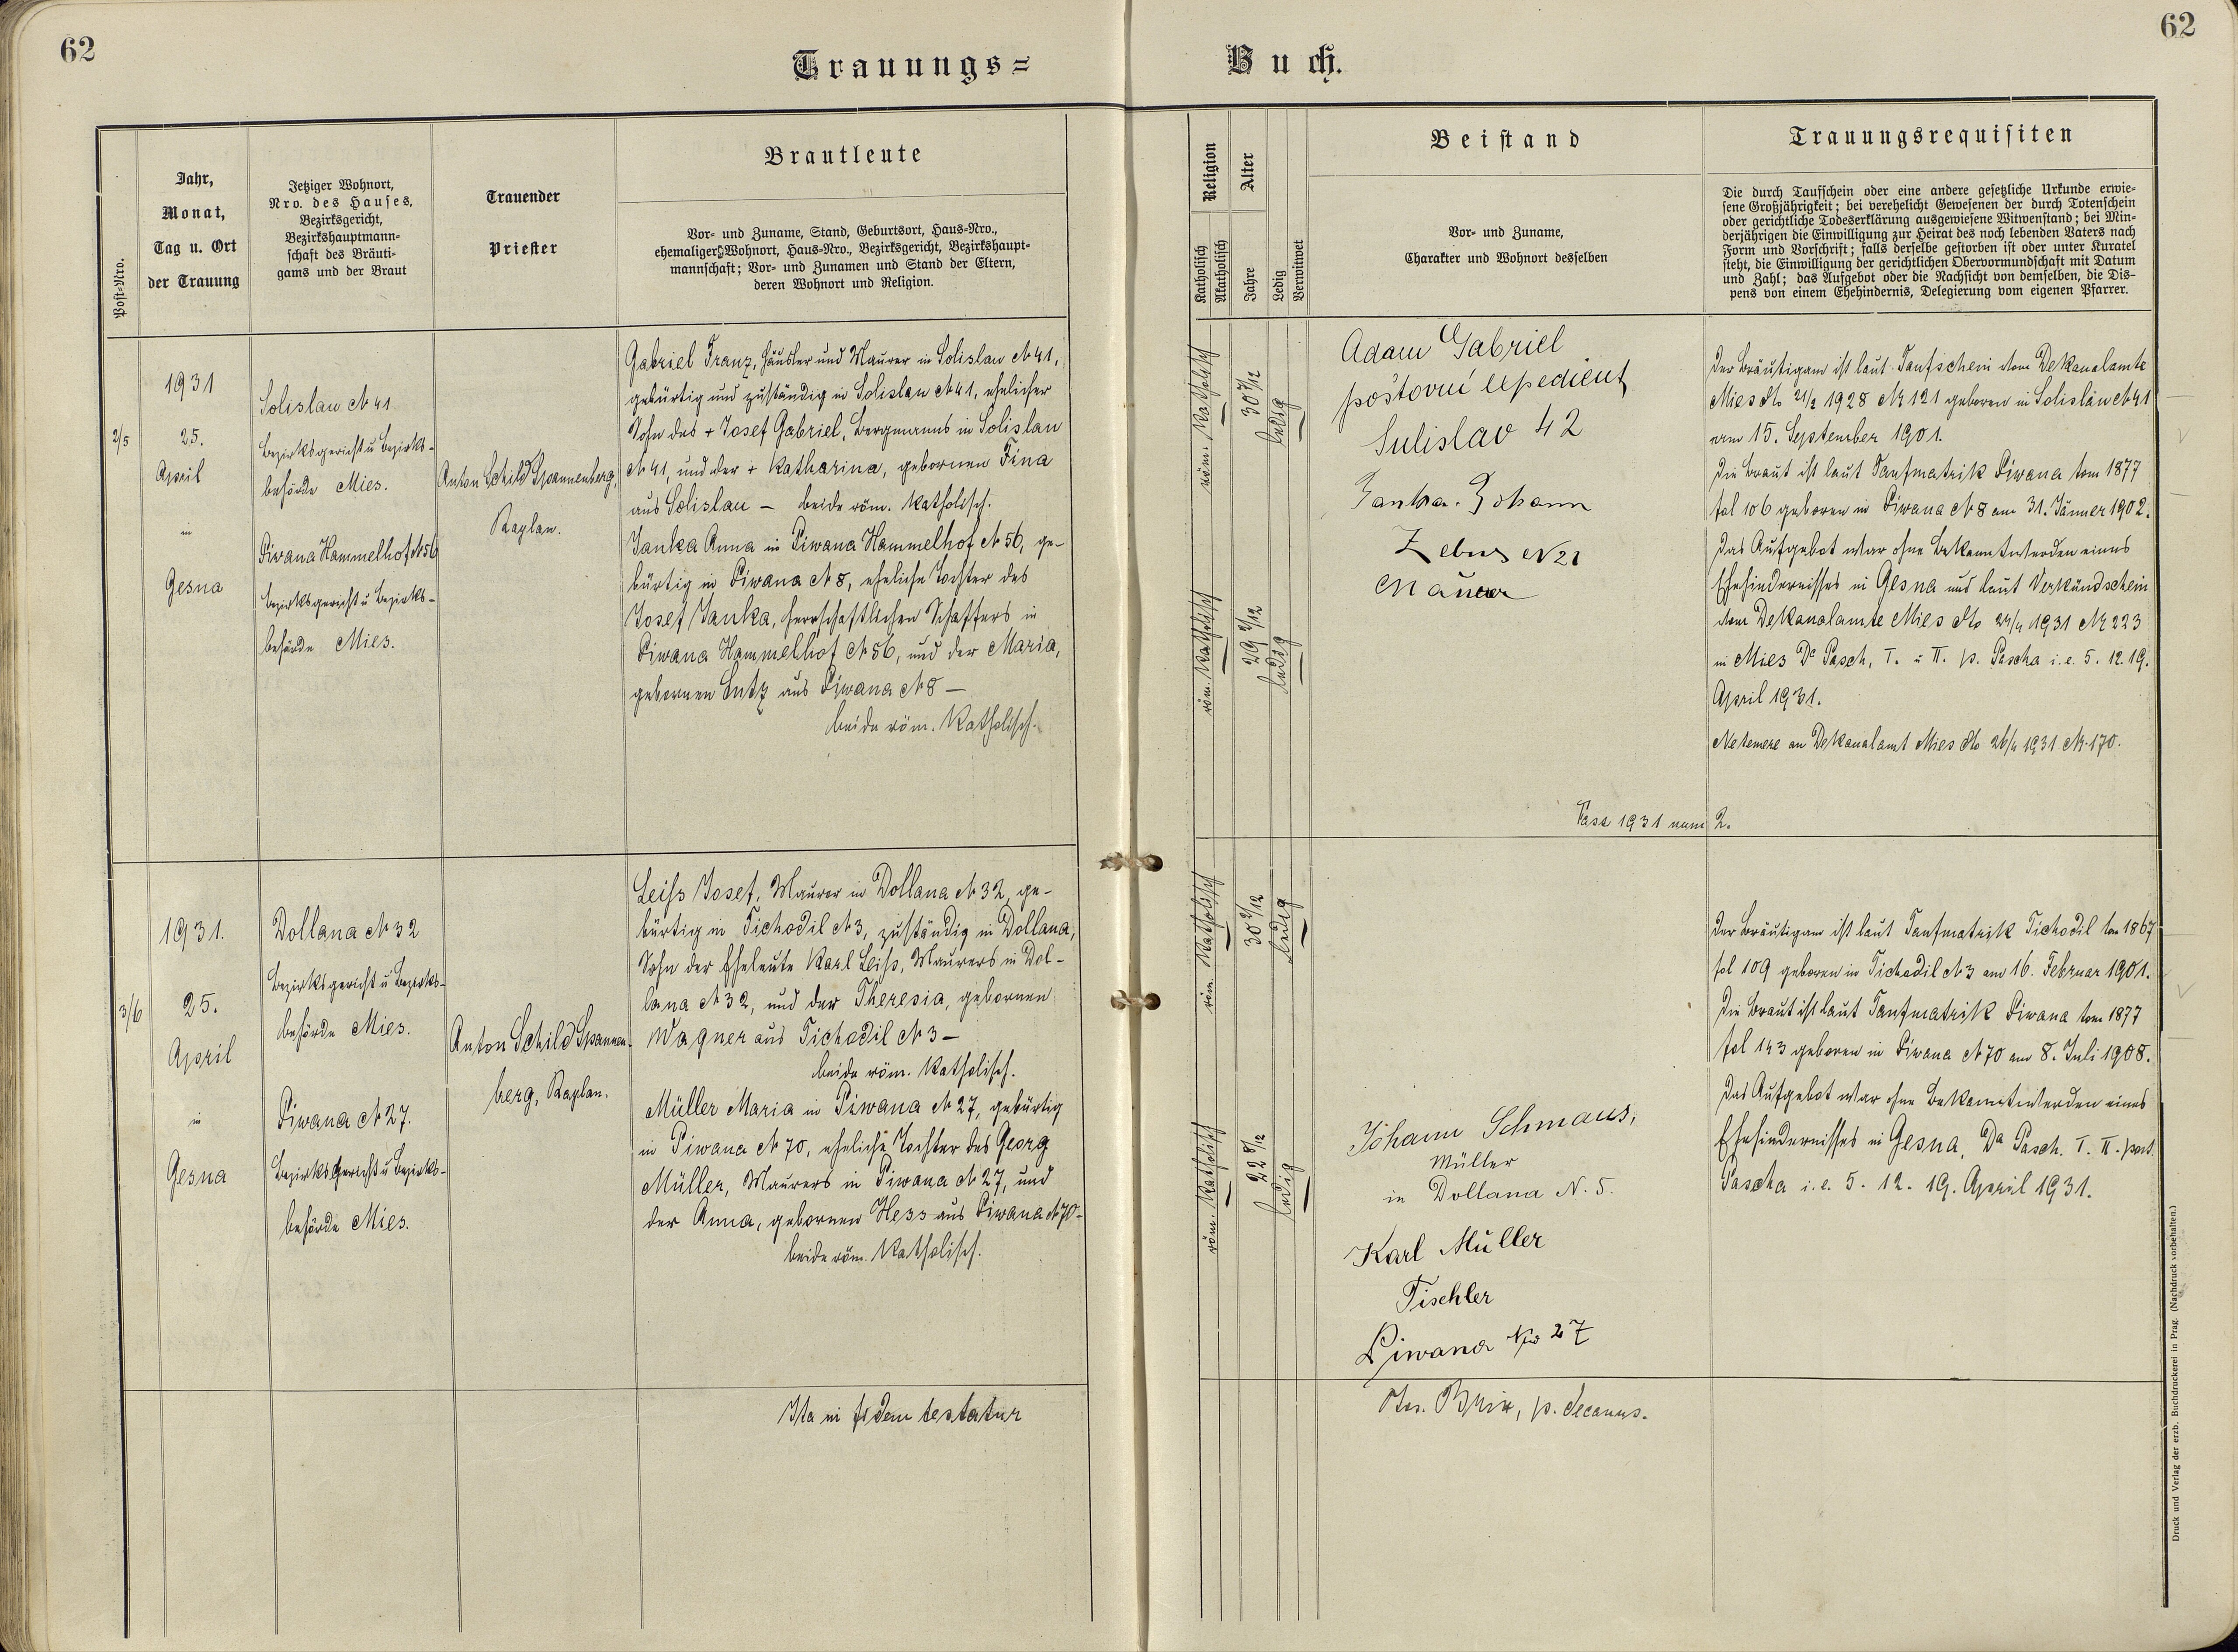 62
62
Trauungs=
Buch.
Post=Nro.
Jahr,
Monat,
Tag u. Ort
der Trauung
Jetziger Wohnort,
Nro. des Hauses,
Bezirksgericht,
Bezirkshauptmann=
schaft des Bräuti=
gams und der Braut
Trauender
Priester
Brautleute
Vor= und Zuname, Stand, Geburtsort, Haus=Nro.,
ehemaliger Wohnort, Haus=Nro., Bezirksgericht, Bezirkshaupt=
mannschaft; Vor= und Zunamen und Stand der Eltern,
deren Wohnort und Religion.
Religion
Katholisch
Akatholisch
Alter
Jahre
Ledig
Verwitwet
Beistand
Vor= und Zuname,
Charakter und Wohnort desselben
Trauungsrequisiten
Die durch Taufschein oder eine andere gesetzliche Urkunde erwie=
sene Großjährigkeit; bei verehelicht Gewesenen der durch Totenschein
oder gerichtliche Todeserklärung ausgewiesene Witwenstand; bei Min=
derjährigen die Einwilligung zur Heirat des noch lebenden Vaters nach
Form und Vorschrift; falls derselbe gestorben ist oder unter Kuratel
steht, die Einwilligung der gerichtlichen Obervormundschaft mit Datum
und Zahl; das Aufgebot oder die Nachsicht von demselben, die Dis=
pens von einem Ehehindernis, Delegierung vom eigenen Pfarrer.
2/5
1931
25.
April
in
Gesna
Solislau N 41
Bezirksgericht u Bezirks-
behörde Mies.
Piwana Hammelhof N 56
Bezirksgericht u Bezirks-
behörde Mies.
Anton Schild Spannenberg,
Kaplan.
Gabriel Franz, Häusler und Maurer in Solislau N 41,
gebürtig und zuständig in Solislau N 41, ehelicher
Sohn des + Josef Gabriel, Bergmanns in Solislau
N 41, und der + Katharina, gebornen Fina
aus Solislau – beide röm. katholisch.
Janka Anna in Piwana Hammelhof N 56, ge-
bürtig in Piwana N 8, eheliche Tochter des
Josef Janka, herrschaftlichen Schaffers in
Piwana Hammelhof N 56, und der Maria,
gebornen Lutz aus Piwana N 8 –
beide röm. katholisch.
röm. katholisch
30 7/12
ledig
röm. katholisch
29 2/12
ledig
Adam Gabriel
poštovní expedient
Sulislav 42
Janka Johann
Zebus N 21
Maurer
Der Bräutigam ist laut Taufschein vom Dekanalamte
Mies dto 21/2 1928 Nr 121 geboren in Solislau N 41
am 15. September 1901.
Die Braut ist laut Taufmatrik Piwana tom 1877
fol 106 geboren in Piwana N 8 am 31. Jänner 1902.
Das Aufgebot war ohne Bekanntwerden eines
Ehehindernisses in Gesna und laut Verkündschein
vom Dekanalamte Mies dto 24/4 1931 Nr 223
in Mies Da Pasch, I. u II. p. Pascha i.e. 5. 12. 19.
April 1931.
Ne temere an Dekanalamt Mies dto 26/4 1931 Nr 170.
Fasc 1931 num 2.
3/6
1931.
25.
April
in
Gesna
Dollana N 32
Bezirksgericht u Bezirks-
behörde Mies.
Piwana N 27.
Bezirksgericht u Bezirks-
behörde Mies.
Anton Schild Spannen-
berg, Kaplan.
Leiss Josef, Maurer in Dollana N 32, ge-
bürtig in Tichodil N 3, zuständig in Dollana,
Sohn der Eheleute Karl Leiss, Maurers in Dol-
lana N 32, und der Theresia, gebornen
Wagner aus Tichodil N 3 –
beide röm. katholisch.
Müller Maria in Piwana N 27, gebürtig
in Piwana N 70, eheliche Tochter des Georg
Müller, Maurers in Piwana N 27, und
der Anna, gebornen Hess aus Piwana N 70-
beide röm. katholisch.
röm. katholisch
30 2/12
ledig
röm. katholisch
22 9/12
ledig
Johann Schmaus,
Müller
in Dollana N. 5.
Karl Müller
Tischler
Piwana Nro 27
Der Bräutigam ist laut Taufmatrik Tichodil tom 1867
fol 109 geboren in Tichodil N 3 am 16. Februar 1901.
Die Braut ist laut Taufmatrik Piwana tom 1877
fol 143 geboren in Piwana N 70 am 8. Juli 1908.
Das Aufgebot war ohne Bekanntwerden eines
Ehehindernisses in Gesna, Da Pasch. I. II. post
Pascha i.e. 5. 12. 19. April 1931.
Ita in fidem testatur
Jos. Brix, p. decanus.
Druck und Verlag der erzb. Buchdruckerei in Prag. (Nachdruck vorbehalten.)